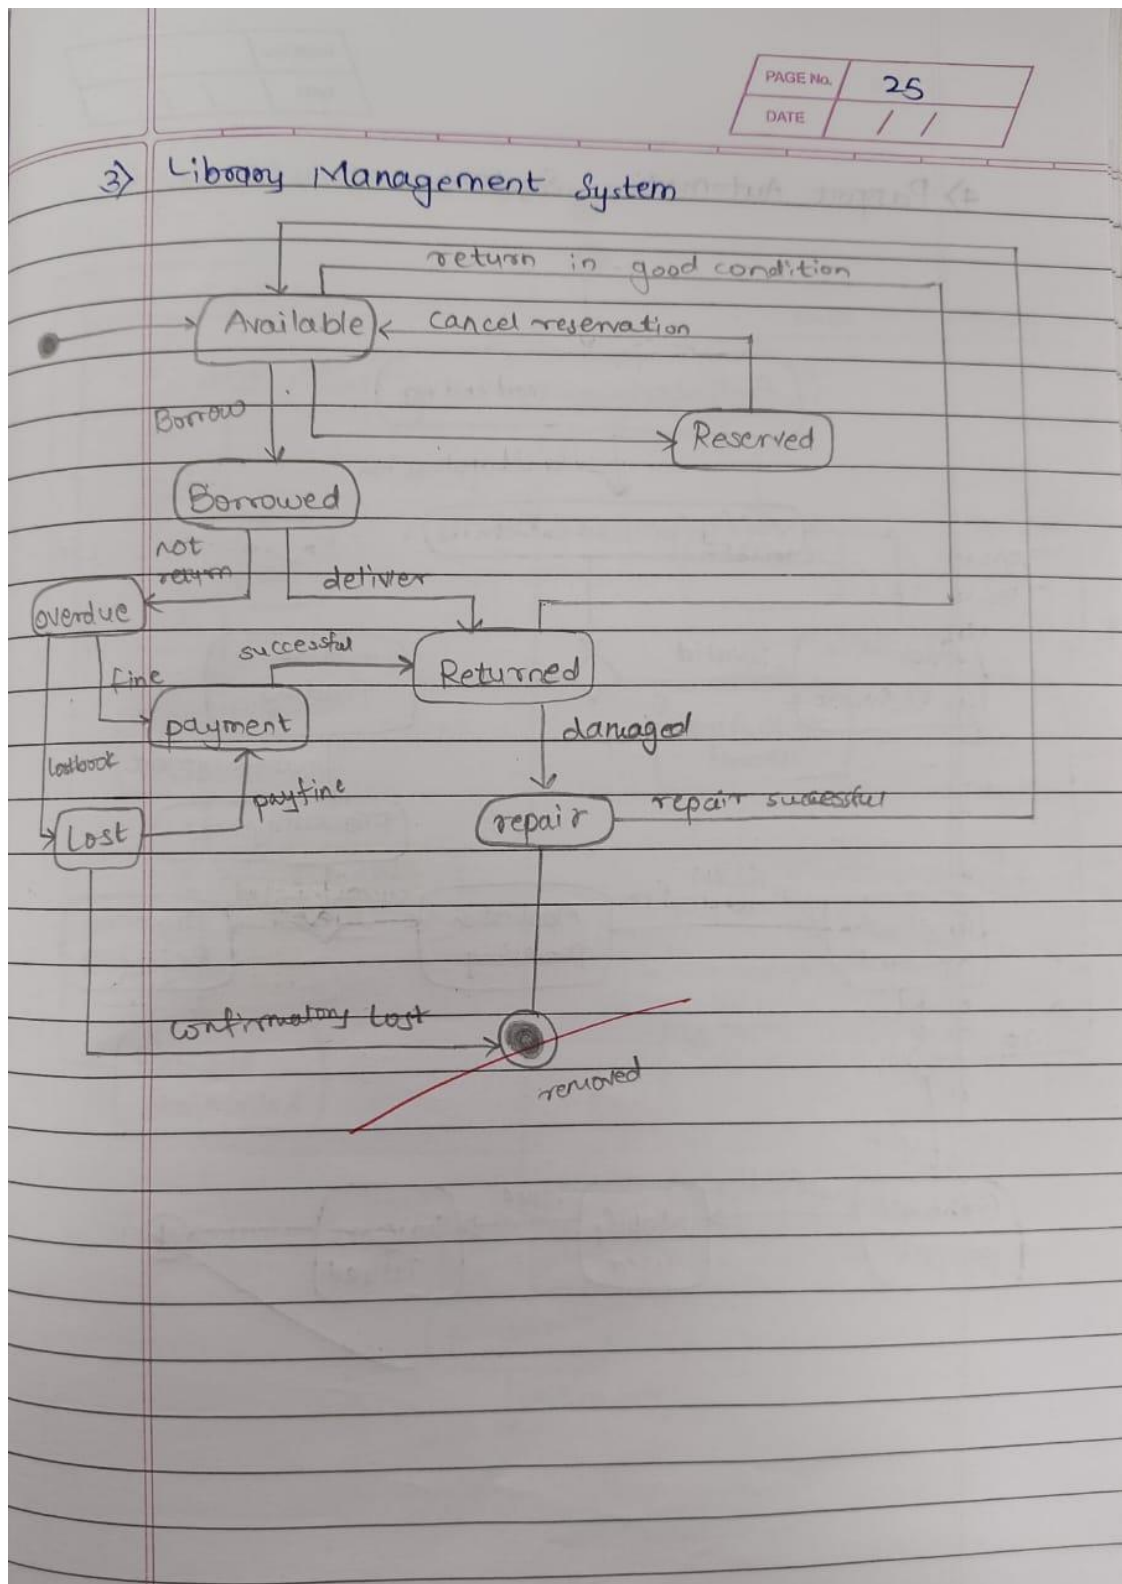 PAGE No. 25
DATE / /
3) Library Management System
return in good condition
Available
cancel reservation
Borrow
Reserved
Borrowed
not
return
deliver
overdue
successful
fine
Returned
payment
damaged
lostbook
payfine
repair successful
repair
Lost
confirmatory Lost
removed